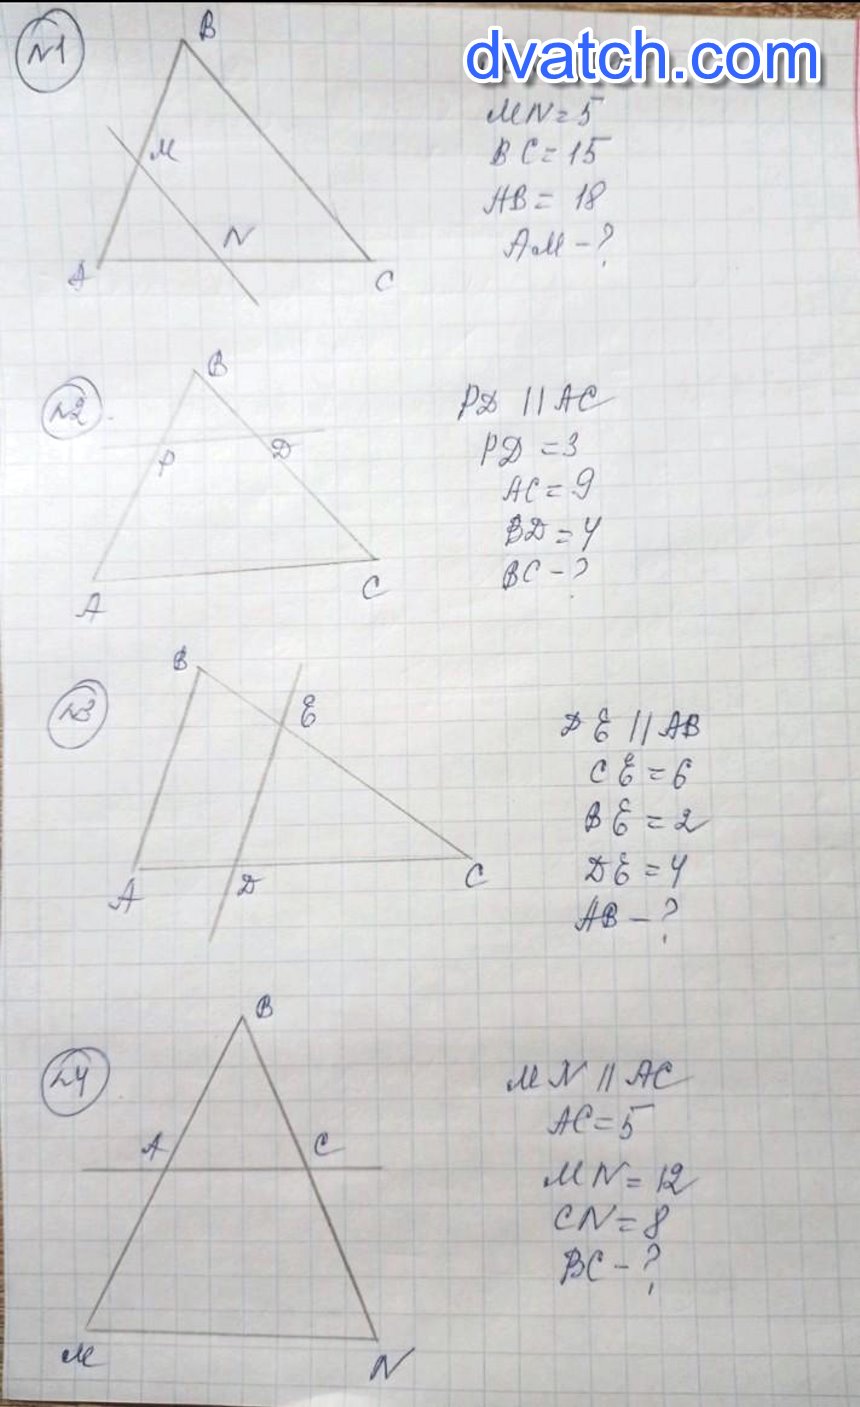 dvatch.com
N1
B
M
N
A
C
MN=5
BC=15
AB=18
AM-?
N2
B
P
D
A
C
PD || AC
PD=3
AC=9
BD=4
BC-?
N3
B
E
A
D
C
DE || AB
CE=6
BE=2
DE=4
AB-?
N4
B
A
C
M
N
MN || AC
AC=5
MN=12
CN=8
BC-?